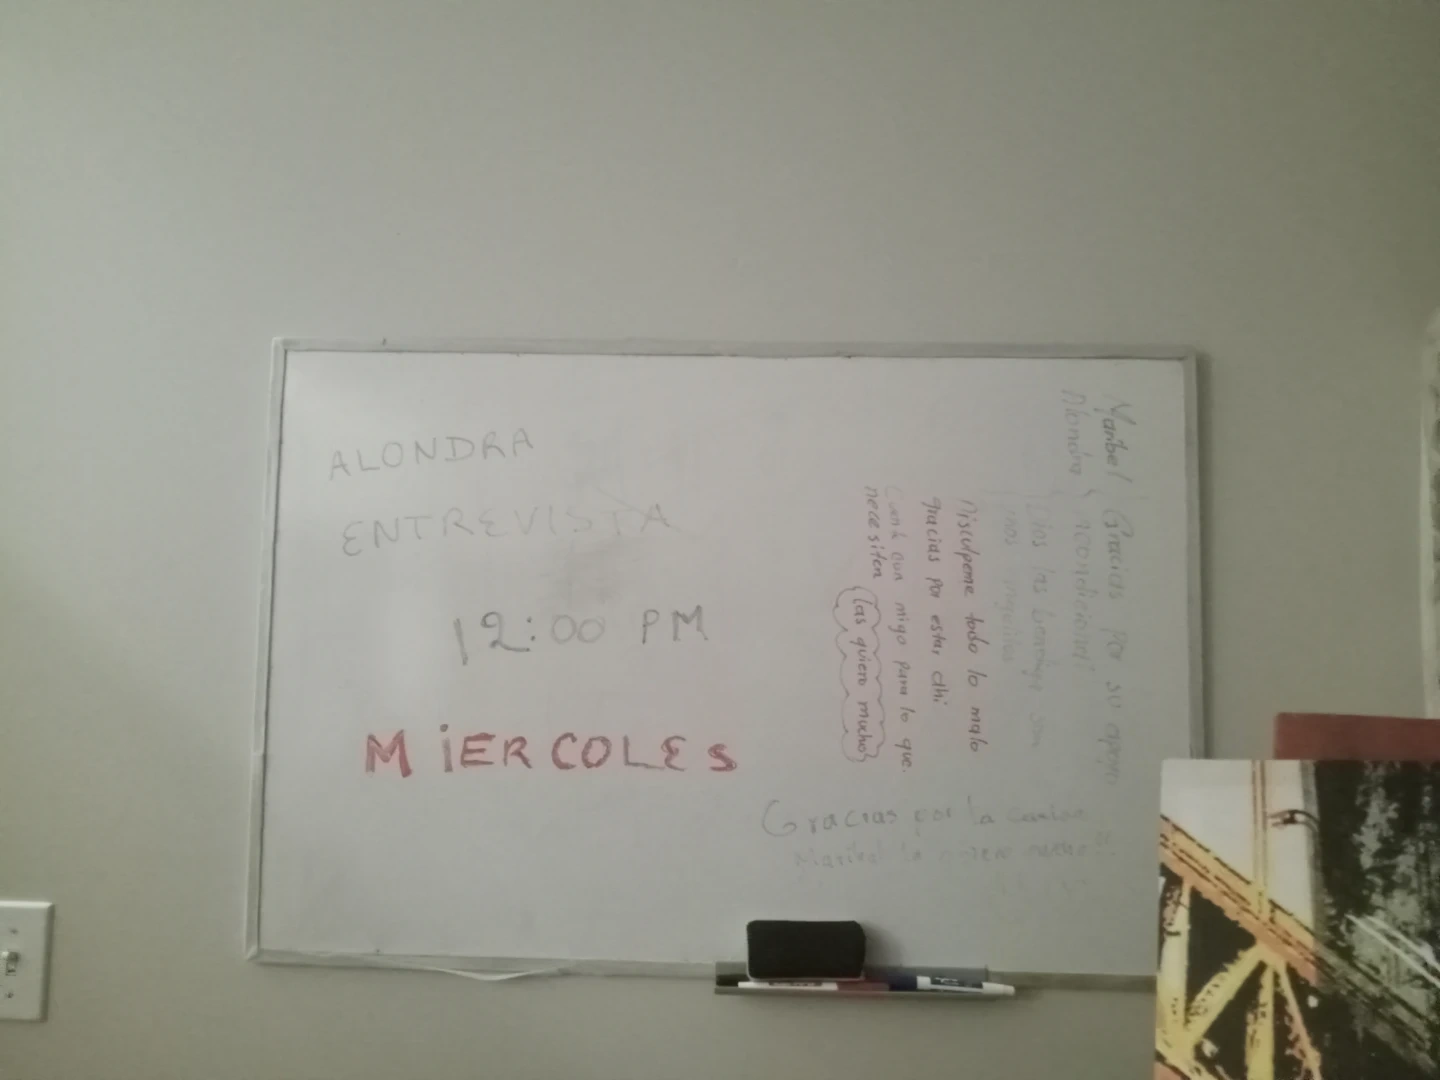 ALONDRA
ENTREVISTA
12:00 PM
MiERCOLES
Maribel Gracias por su apoyo
Alondra incondicional
Dios las bendiga son
Disculpeme todo lo malo
gracias por estar ahi
Cuente con migo para lo que
necesiten las quiero mucho
Gracias por la
Maribel la quiero mucho